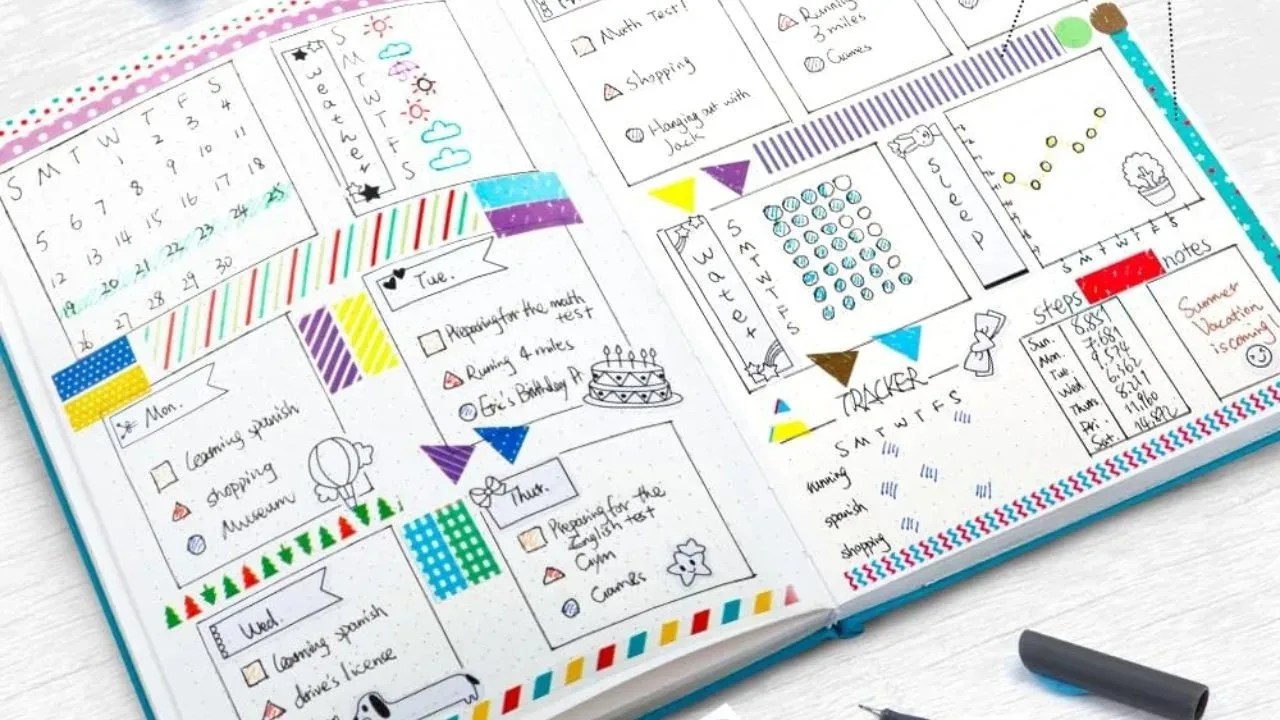 S M T W T F S
1 2 3 4
5 6 7 8 9 10 11
12 13 14 15 16 17 18
19 20 21 22 23 24 25
26 27 28 29 30
weather
S
M
T
W
T
F
S
Mon.
Learning spanish
shopping
Museum
Tue.
Preparing for the math
test
Runing 4 miles
Eric's Birthday
Wed.
Learning spanish
drive's license
Thur.
Preparing for the
English test
Gym
Games
Math Test!
Shopping
Hanging out with
Jack
Running
3 miles
Games
water
S
M
T
W
T
F
S
Sleep
S M T W T F S
TRACKER
S M T W T F S
running
spanish
shopping
steps
Sun. 8.851
Mon. 7.681
Tue. 9.574
Wed. 6.362
Thum 8.217
Fri. 11.960
Sat. 14.892
notes
Summer
Vacation
is coming